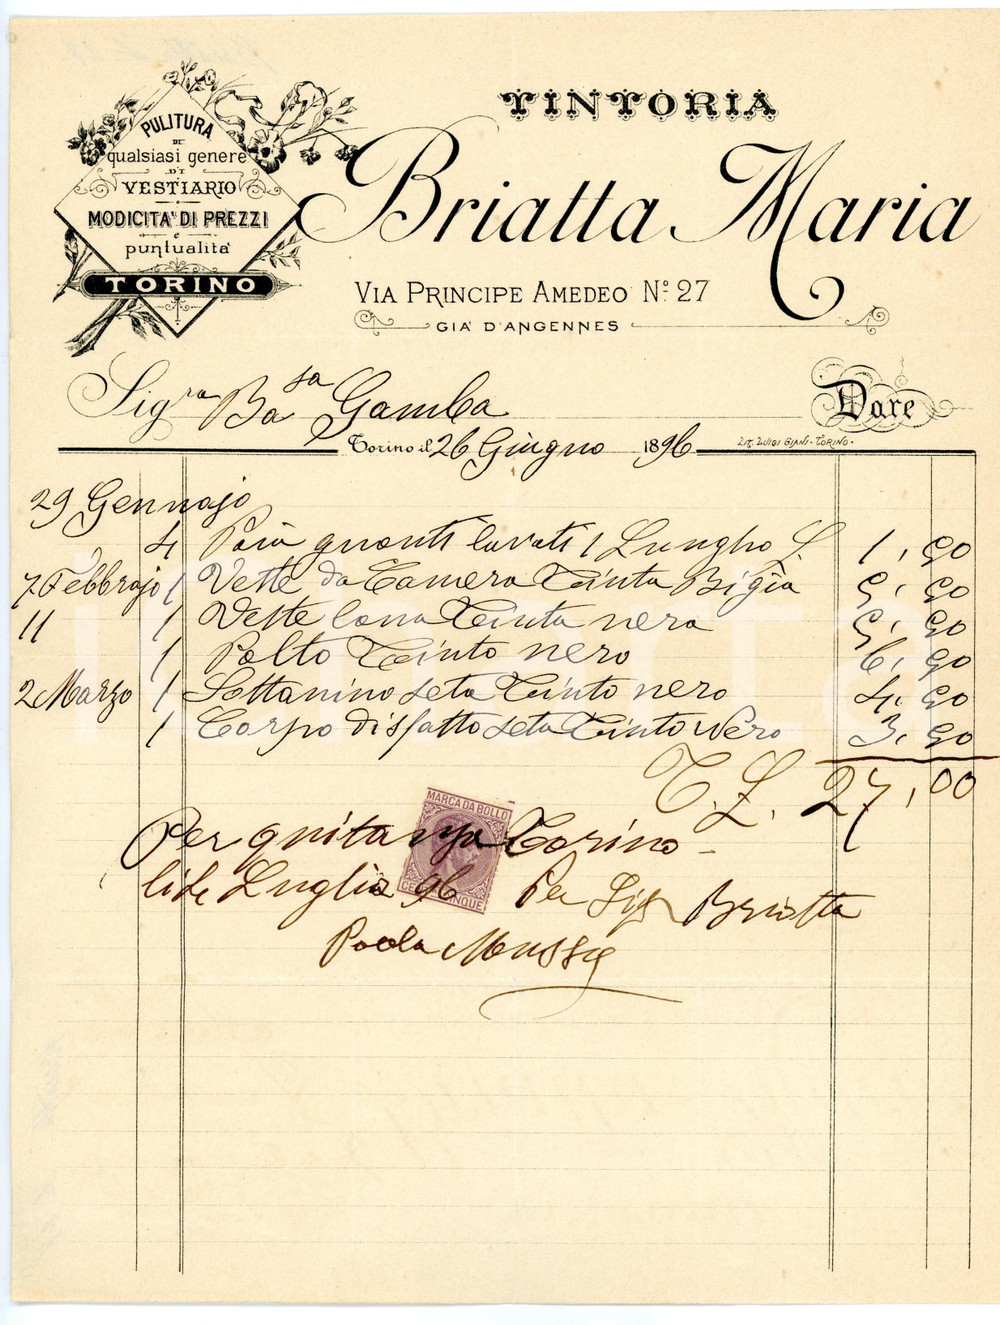 PULITURA
DI
qualsiasi genere
DI
VESTIARIO
MODICITÀ DI PREZZI
e
puntualità
TORINO
TINTORIA
Briatta Maria
VIA PRINCIPE AMEDEO Nº 27
GIA' D'ANGENNES
Sigra Basa Gamba
Dare
Torino il 26 Giugno 1896
LIT. LUIGI GIANI-TORINO-
29 Gennajo
4 Paia guanti lavati 1 Lungho L. 1,50
7 Febbrajo 1 Veste da Camera Tinta Bigia 5,50
11 1 Veste lana Tinta nera 5,50
1 Palto Tinto nero 6,50
2 Marzo 1 Sottanino seta Tinto nero 4,50
1 Corpo disfatto seta Tinto Nero 3,50
T. L. 27,00
MARCA DA BOLLO
Per quitanza Torino
li Luglio 96 Per Sig Briatta
CINQUE
Paola Mussa